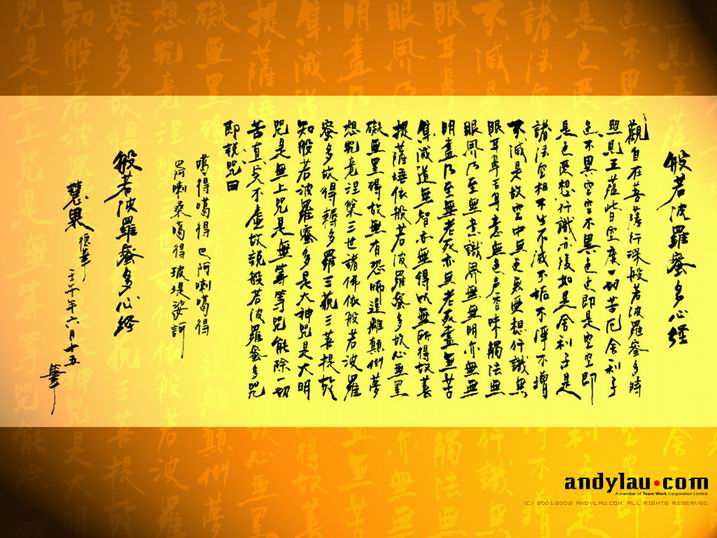 般若波羅蜜多心經
觀自在菩薩行深般若波羅蜜多時
照見五蘊皆空度一切苦厄舍利子
色不異空空不異色色即是空空即
是色受想行識亦復如是舍利子是
諸法空相不生不滅不垢不淨不增
不減是故空中無色無受想行識無
眼耳鼻舌身意無色聲香味觸法無
眼界乃至無意識界無無明亦無無
明盡乃至無老死亦無老死盡無苦
集滅道無智亦無得以無所得故菩
提薩埵依般若波羅蜜多故心無罣
礙無罣礙故無有恐怖遠離顛倒夢
想究竟涅槃三世諸佛依般若波羅
蜜多故得耨多羅三藐三菩提故
知般若波羅蜜多是大神咒是大明
咒是無上咒是無等等咒能除一切
苦真實不虛故說般若波羅蜜多咒
即說咒曰
噶得噶得 巴阿喇噶得
阿喇桑噶得玻堤娑訶
般若波羅蜜多心經
慧果
壬午年六月十五
筆
andylau.com
A member of Team Work Corporation Limited
(C) 2001-2002 ANDYLAU.COM. ALL RIGHTS RESERVED